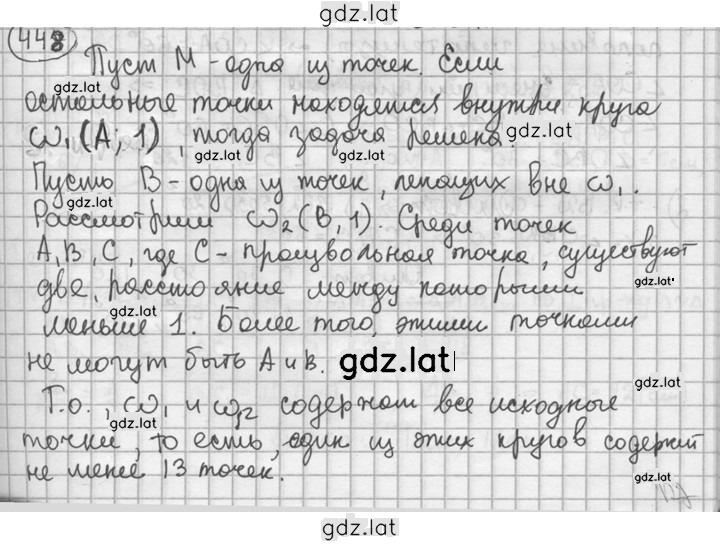 gdz.lat
448
Пуст М - одна из точек. Если
gdz.lat
остальные точки находятся внутри круга
gdz.lat
ω₁(A; 1), тогда задача решена.
gdz.lat
Пусть В - одна из точек, лежащих вне ω₁.
gdz.lat
Рассмотрим ω₂(B, 1). Среди точек
A, B, C, где С - произвольная точка, существуют
gdz.lat
две, расстояние между которыми
gdz.lat
меньше 1. Более того, этими точками
не могут быть А и В. gdz.lat
Т.о., ω₁ и ω₂ содержат все исходные
gdz.lat
точки, то есть, один из этих кругов содержит
не менее 13 точек.
gdz.lat
gdz.lat